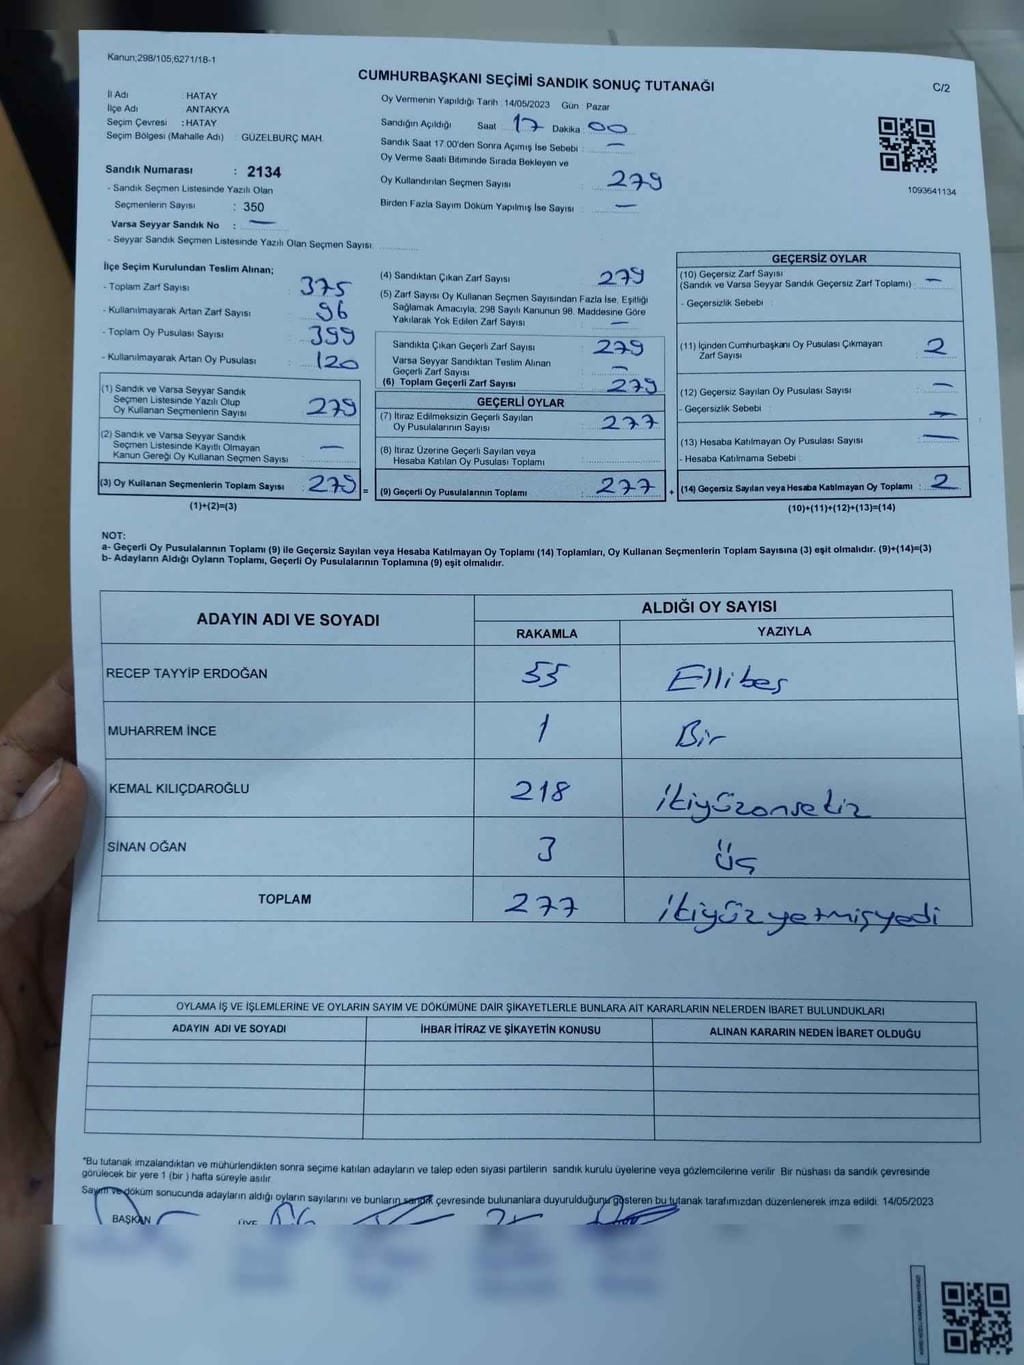 Kanun;298/105,6271/18-1
CUMHURBAŞKANI SEÇİMİ SANDIK SONUÇ TUTANAĞI
C/2
İl Adı HATAY
İlçe Adı ANTAKYA
Seçim Çevresi : HATAY
Seçim Bölgesi (Mahalle Adı) GÜZELBURÇ MAH.
Oy Vermenin Yapıldığı Tarih : 14/05/2023 Gün : Pazar
Sandığın Açıldığı Saat 17 Dakika : 00
Sandık Saat 17.00'den Sonra Açımış İse Sebebi : —
Oy Verme Saati Bitiminde Sırada Bekleyen ve
Oy Kullandırılan Seçmen Sayısı : 279
Birden Fazla Sayım Döküm Yapılmış İse Sayısı : —
1093641134
Sandık Numarası : 2134
- Sandık Seçmen Listesinde Yazılı Olan
Seçmenlerin Sayısı : 350
Varsa Seyyar Sandık No : —
- Seyyar Sandık Seçmen Listesinde Yazılı Olan Seçmen Sayısı:
İlçe Seçim Kurulundan Teslim Alınan;
- Toplam Zarf Sayısı 375
- Kullanılmayarak Artan Zarf Sayısı : 96
- Toplam Oy Pusulası Sayısı : 399
- Kullanılmayarak Artan Oy Pusulası : 120
(1) Sandık ve Varsa Seyyar Sandık
Seçmen Listesinde Yazılı Olup
Oy Kullanan Seçmenlerin Sayısı : 279
(2) Sandık ve Varsa Seyyar Sandık
Seçmen Listesinde Kayıtlı Olmayan
Kanun Gereği Oy Kullanan Seçmen Sayısı : —
(3) Oy Kullanan Seçmenlerin Toplam Sayısı : 279 =
(1)+(2)=(3)
(4) Sandıktan Çıkan Zarf Sayısı : 279
(5) Zarf Sayısı Oy Kullanan Seçmen Sayısından Fazla İse, Eşitliği
Sağlamak Amacıyla, 298 Sayılı Kanunun 98. Maddesine Göre
Yakılarak Yok Edilen Zarf Sayısı : —
Sandıkta Çıkan Geçerli Zarf Sayısı : 279
Varsa Seyyar Sandıktan Teslim Alınan
Geçerli Zarf Sayısı : —
(6) Toplam Geçerli Zarf Sayısı : 279
GEÇERLİ OYLAR
(7) İtiraz Edilmeksizin Geçerli Sayılan
Oy Pusulalarının Sayısı : 277
(8) İtiraz Üzerine Geçerli Sayılan veya
Hesaba Katılan Oy Pusulası Toplamı :
(9) Geçerli Oy Pusulalarının Toplamı : 277 +
GEÇERSİZ OYLAR
(10) Geçersiz Zarf Sayısı
(Sandık ve Varsa Seyyar Sandık Geçersiz Zarf Toplamı) : —
- Geçersizlik Sebebi :
(11) İçinden Cumhurbaşkanı Oy Pusulası Çıkmayan
Zarf Sayısı : 2
(12) Geçersiz Sayılan Oy Pusulası Sayısı : —
- Geçersizlik Sebebi : —
(13) Hesaba Katılmayan Oy Pusulası Sayısı : —
- Hesaba Katılmama Sebebi :
(14) Geçersiz Sayılan veya Hesaba Katılmayan Oy Toplamı : 2
(10)+(11)+(12)+(13)=(14)
NOT:
a- Geçerli Oy Pusulalarının Toplamı (9) ile Geçersiz Sayılan veya Hesaba Katılmayan Oy Toplamı (14) Toplamları, Oy Kullanan Seçmenlerin Toplam Sayısına (3) eşit olmalıdır. (9)+(14)=(3)
b- Adayların Aldığı Oyların Toplamı, Geçerli Oy Pusulalarının Toplamına (9) eşit olmalıdır.
ADAYIN ADI VE SOYADI ALDIĞI OY SAYISI
RAKAMLA YAZIYLA
RECEP TAYYİP ERDOĞAN 55 Ellibeş
MUHARREM İNCE 1 Bir
KEMAL KILIÇDAROĞLU 218 İkiyüzonsekiz
SİNAN OĞAN 3 üç
TOPLAM 277 İkiyüzyetmişyedi
OYLAMA İŞ VE İŞLEMLERİNE VE OYLARIN SAYIM VE DÖKÜMÜNE DAİR ŞİKAYETLERLE BUNLARA AİT KARARLARIN NELERDEN İBARET BULUNDUKLARI
ADAYIN ADI VE SOYADI İHBAR İTİRAZ VE ŞİKAYETİN KONUSU ALINAN KARARIN NEDEN İBARET OLDUĞU
*Bu tutanak imzalandıktan ve mühürlendikten sonra seçime katılan adayların ve talep eden siyasi partilerin sandık kurulu üyelerine veya gözlemcilerine verilir. Bir nüshası da sandık çevresinde
görülecek bir yere 1 (bir) hafta süreyle asılır.
Sayım ve döküm sonucunda adayların aldığı oyların sayılarını ve bunların sandık çevresinde bulunanlara duyurulduğunu gösteren bu tutanak tarafımızdan düzenlenerek imza edildi. 14/05/2023
BAŞKAN ÜYE